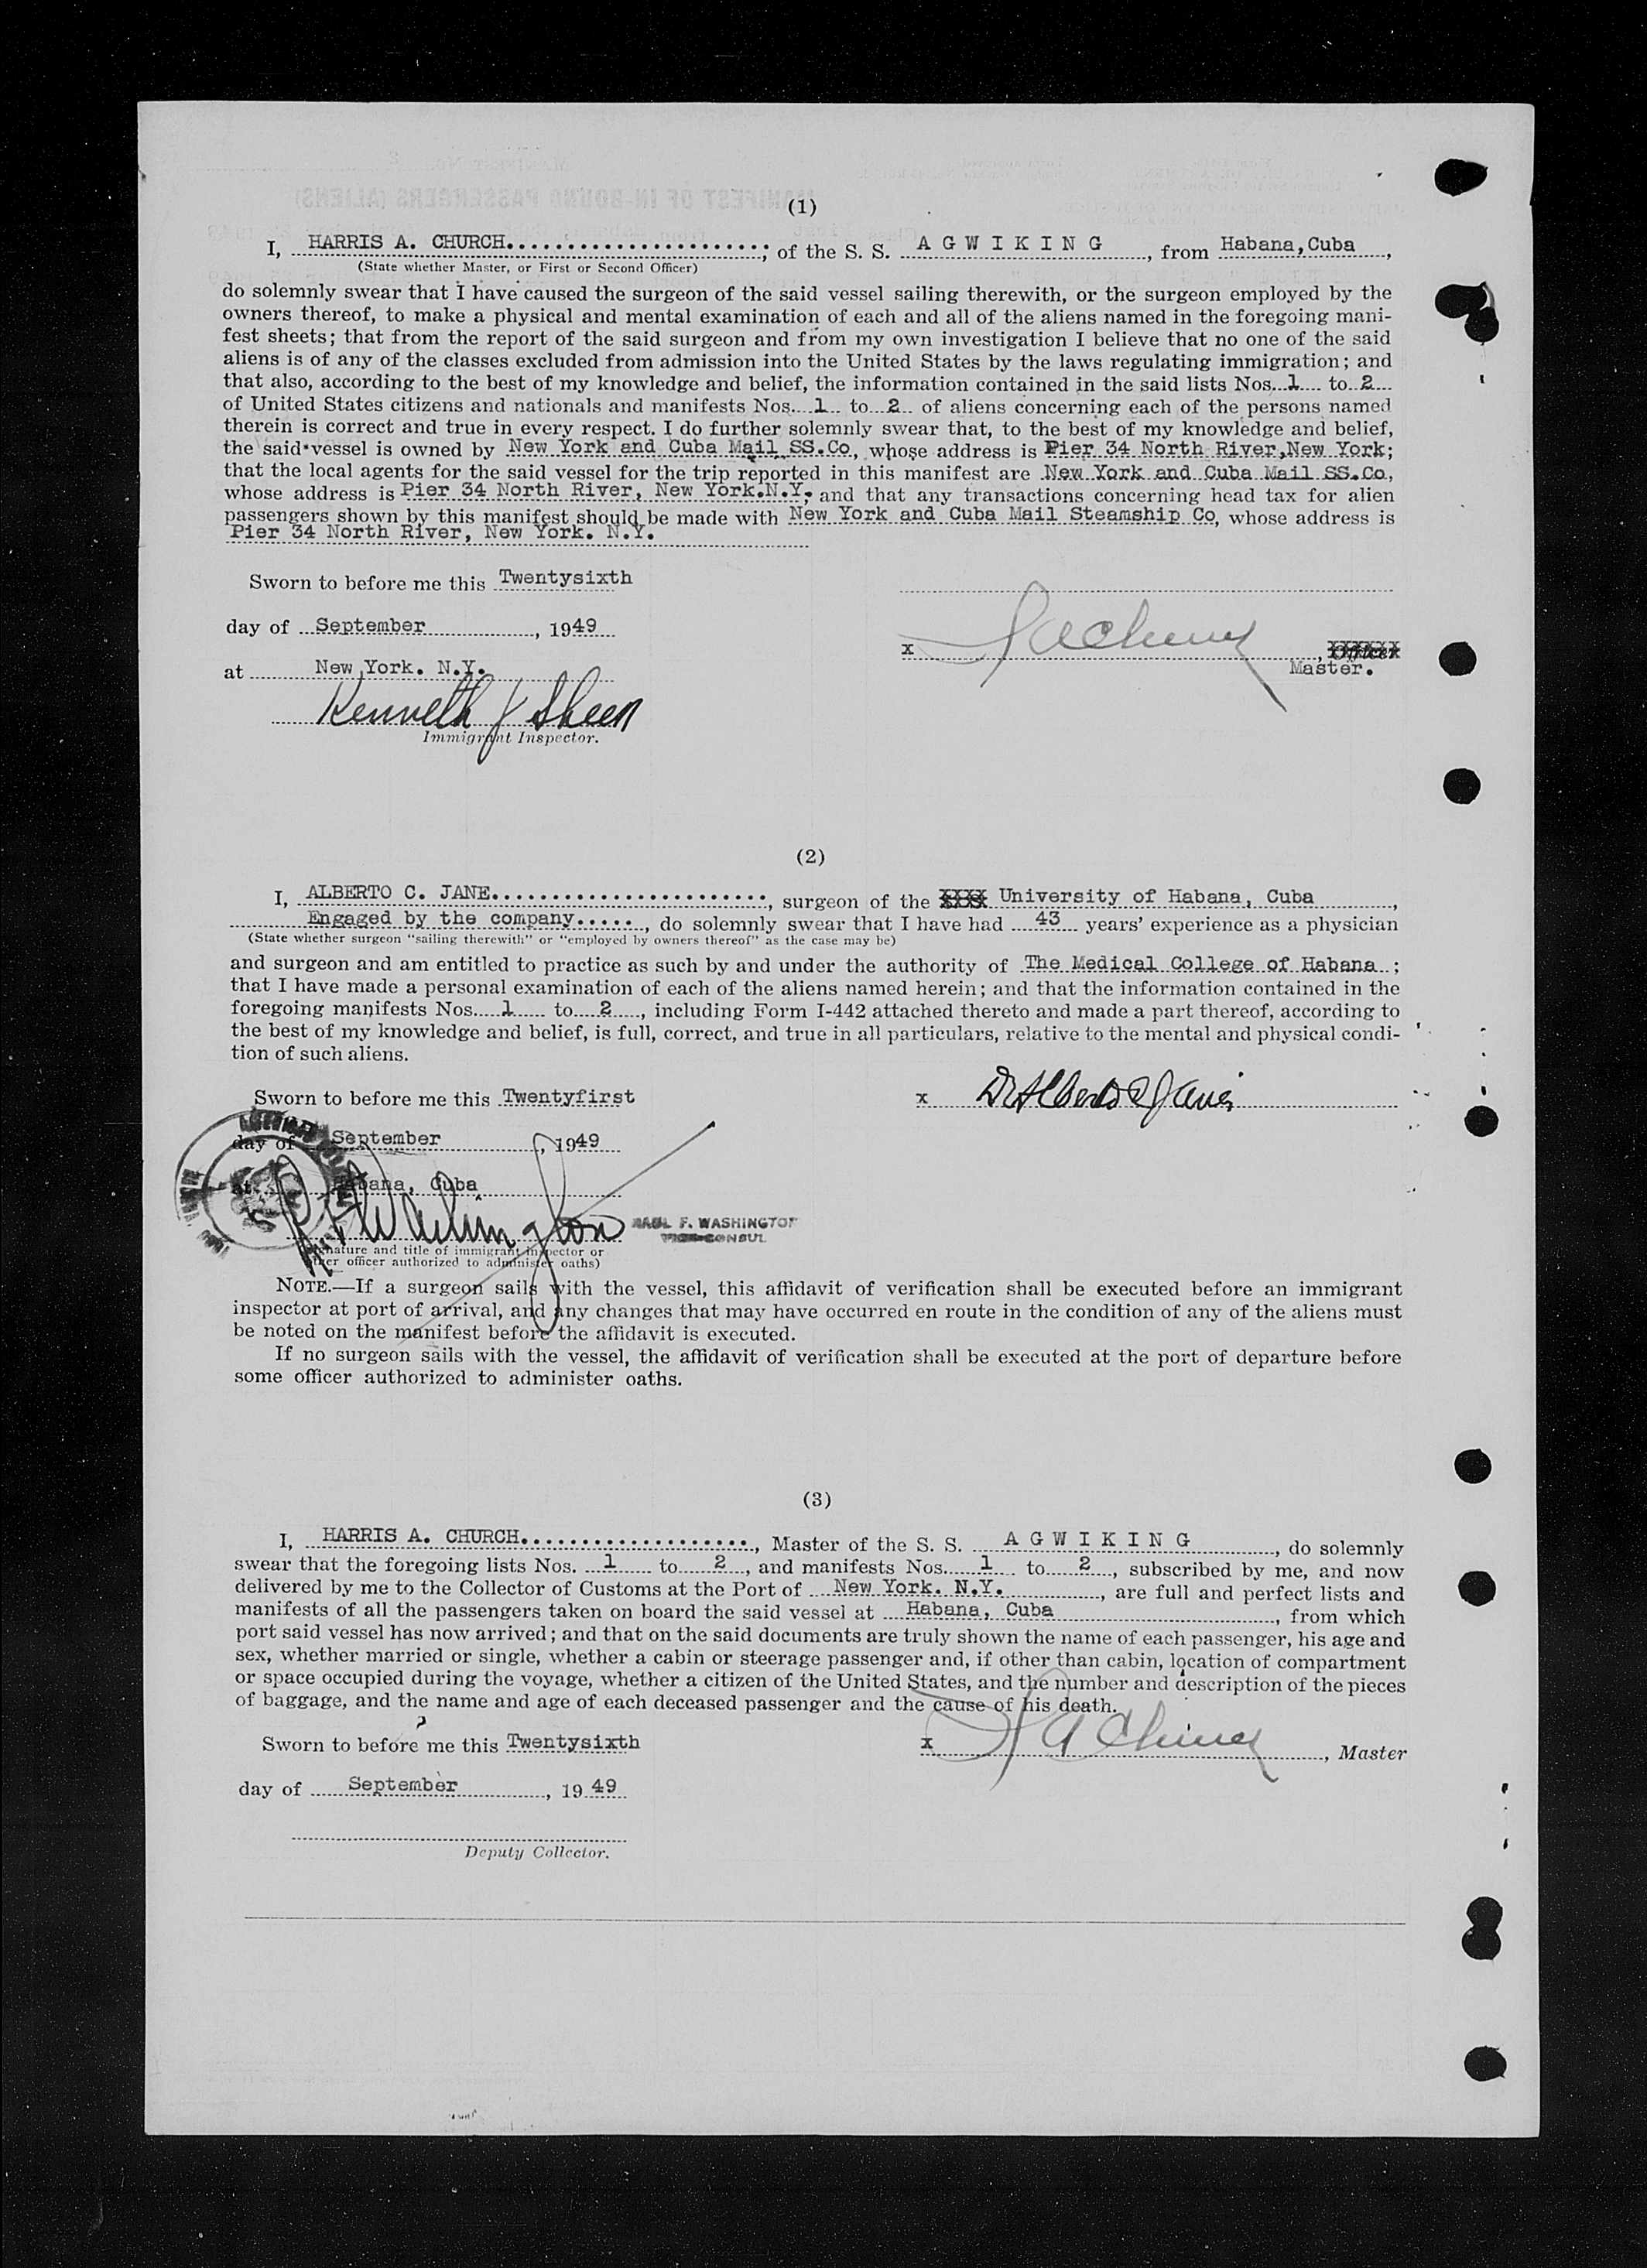 (1)
I, HARRIS A. CHURCH.......................; of the S. S. A G W I K I N G, from Habana, Cuba,
(State whether Master, or First or Second Officer)
do solemnly swear that I have caused the surgeon of the said vessel sailing therewith, or the surgeon employed by the
owners thereof, to make a physical and mental examination of each and all of the aliens named in the foregoing mani-
fest sheets; that from the report of the said surgeon and from my own investigation I believe that no one of the said
aliens is of any of the classes excluded from admission into the United States by the laws regulating immigration; and
that also, according to the best of my knowledge and belief, the information contained in the said lists Nos. 1 to 2
of United States citizens and nationals and manifests Nos. 1 to 2 of aliens concerning each of the persons named
therein is correct and true in every respect. I do further solemnly swear that, to the best of my knowledge and belief,
the said vessel is owned by New York and Cuba Mail SS.Co, whose address is Pier 34 North River,New York;
that the local agents for the said vessel for the trip reported in this manifest are New York and Cuba Mail SS.Co,
whose address is Pier 34 North River, New York.N.Y; and that any transactions concerning head tax for alien
passengers shown by this manifest should be made with New York and Cuba Mail Steamship Co, whose address is
Pier 34 North River, New York. N.Y.
Sworn to before me this Twentysixth
day of September, 1949
x H A Church, Officer
Master.
at New York. N.Y.
Kenneth J Sheen
Immigrant Inspector.
(2)
I, ALBERTO C. JANE......................., surgeon of the XXXX University of Habana, Cuba,
Engaged by the company....., do solemnly swear that I have had 43 years' experience as a physician
(State whether surgeon "sailing therewith" or "employed by owners thereof" as the case may be)
and surgeon and am entitled to practice as such by and under the authority of The Medical College of Habana;
that I have made a personal examination of each of the aliens named herein; and that the information contained in the
foregoing manifests Nos. 1 to 2, including Form I-442 attached thereto and made a part thereof, according to
the best of my knowledge and belief, is full, correct, and true in all particulars, relative to the mental and physical condi-
tion of such aliens.
Sworn to before me this Twentyfirst
x Dr Alberto C Jane
day of September, 1949
at Habana, Cuba
F Washington
F. WASHINGTON
VICE CONSUL
(Signature and title of immigrant inspector or
other officer authorized to administer oaths)
NOTE.—If a surgeon sails with the vessel, this affidavit of verification shall be executed before an immigrant
inspector at port of arrival, and any changes that may have occurred en route in the condition of any of the aliens must
be noted on the manifest before the affidavit is executed.
If no surgeon sails with the vessel, the affidavit of verification shall be executed at the port of departure before
some officer authorized to administer oaths.
(3)
I, HARRIS A. CHURCH...................., Master of the S. S. A G W I K I N G, do solemnly
swear that the foregoing lists Nos. 1 to 2, and manifests Nos. 1 to 2, subscribed by me, and now
delivered by me to the Collector of Customs at the Port of New York. N.Y., are full and perfect lists and
manifests of all the passengers taken on board the said vessel at Habana, Cuba, from which
port said vessel has now arrived; and that on the said documents are truly shown the name of each passenger, his age and
sex, whether married or single, whether a cabin or steerage passenger and, if other than cabin, location of compartment
or space occupied during the voyage, whether a citizen of the United States, and the number and description of the pieces
of baggage, and the name and age of each deceased passenger and the cause of his death.
Sworn to before me this Twentysixth
x H A Church, Master
day of September, 1949
Deputy Collector.